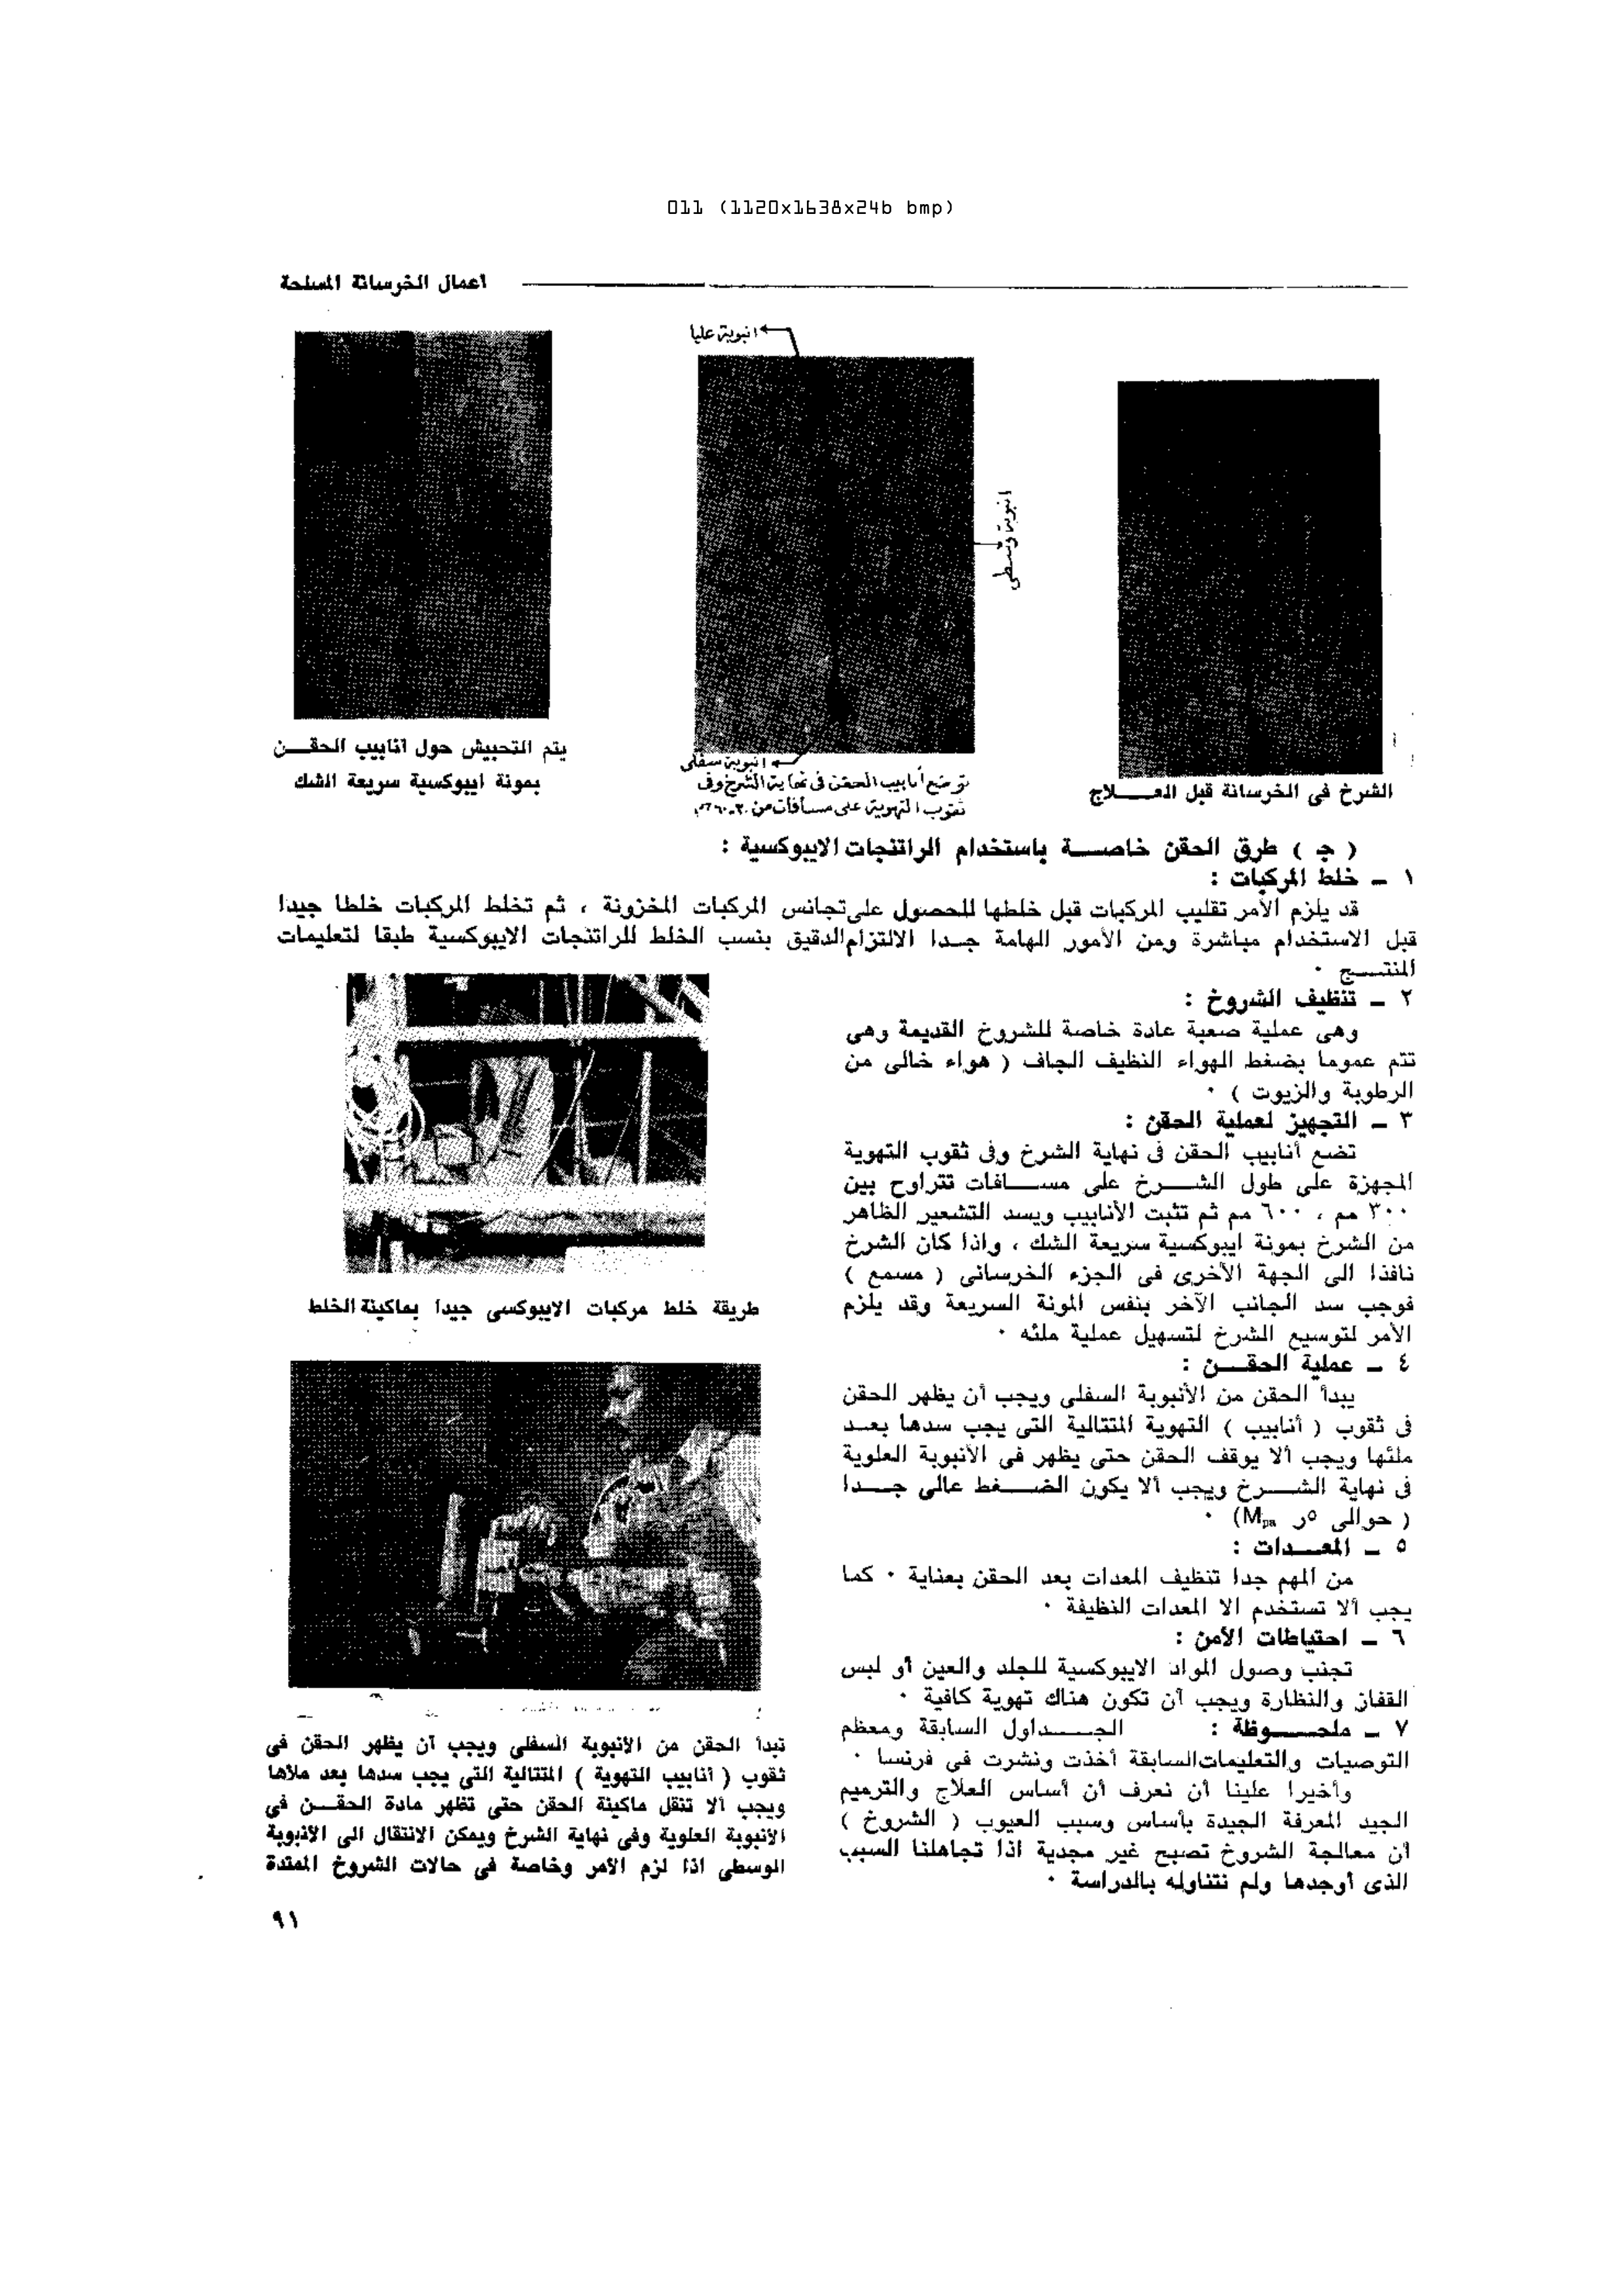 011 (1120x1638x24b bmp)
اعمال الخرسانة المسلحة
انبوبة عليا
انبوبة وسطى
انبوبة سفلى
الشرخ فى الخرسانة قبل العـــلاج
توضع أنابيب الحقن فى نهاية الشرخ وفى
ثقوب التهوية على مسافات من
يتم التحبيش حول انابيب الحقــن
بمونة ايبوكسية سريعة الشك
( ج ) طرق الحقن خاصـــة باستخدام الراتنجات الايبوكسية :
١ – خلط المركبات :
قد يلزم الأمر تقليب المركبات قبل خلطها للحصول على تجانس المركبات المخزونة ، ثم تخلط المركبات خلطا جيدا
قبل الاستخدام مباشرة ومن الأمور الهامة جـدا الالتزام الدقيق بنسب الخلط للراتنجات الايبوكسية طبقا لتعليمات
المنتـــج ٠
٢ – تنظيف الشروخ :
وهى عملية صعبة عادة خاصة للشروخ القديمة وهى
تتم عموما بضغط الهواء النظيف الجاف ( هواء خالى من
الرطوبة والزيوت ) ٠
٣ – التجهيز لعملية الحقن :
تضع أنابيب الحقن فى نهاية الشرخ وفى ثقوب التهوية
المجهزة على طول الشـــرخ على مســـافات تتراوح بين
٣٠٠ مم ، ٦٠٠ مم ثم تثبت الأنابيب ويسد التشعير الظاهر
من الشرخ بمونة ايبوكسية سريعة الشك ، واذا كان الشرخ
نافذا الى الجهة الأخرى فى الجزء الخرسانى ( مسمع )
فوجب سد الجانب الآخر بنفس المونة السريعة وقد يلزم
الأمر لتوسيع الشرخ لتسهيل عملية ملئه ٠
٤ – عملية الحقـــن :
يبدأ الحقن من الأنبوبة السفلى ويجب أن يظهر الحقن
فى ثقوب ( أنابيب ) التهوية المتتالية التى يجب سدها بعــد
ملئها ويجب ألا يوقف الحقن حتى يظهر فى الأنبوبة العلوية
فى نهاية الشـــرخ ويجب ألا يكون الضـــغط عالى جـــدا
( حوالى ٥ر Mpa) ٠
٥ – المعـــدات :
من المهم جدا تنظيف المعدات بعد الحقن بعناية ٠ كما
يجب ألا تستخدم الا المعدات النظيفة ٠
٦ – احتياطات الأمن :
تجنب وصول المواد الايبوكسية للجلد والعين أو لبس
القفاز والنظارة ويجب أن تكون هناك تهوية كافية ٠
٧ – ملحـــوظة : الجـــداول السابقة ومعظم
التوصيات والتعليمات السابقة أخذت ونشرت فى فرنسا ٠
وأخيرا علينا أن نعرف أن أساس العلاج والترميم
الجيد المعرفة الجيدة بأساس وسبب العيوب ( الشروخ )
أن معالجة الشروخ تصبح غير مجدية اذا تجاهلنا السبب
الذى أوجدها ولم نتناوله بالدراسة ٠
طريقة خلط مركبات الايبوكسى جيدا بماكينة الخلط
تبدأ الحقن من الأنبوبة السفلى ويجب أن يظهر الحقن فى
ثقوب ( أنابيب التهوية ) المتتالية التى يجب سدها بعد ملأها
ويجب ألا تنقل ماكينة الحقن حتى تظهر مادة الحقــن فى
الأنبوبة العلوية وفى نهاية الشرخ ويمكن الانتقال الى الأنبوبة
الوسطى اذا لزم الأمر وخاصة فى حالات الشروخ الممتدة
٩١